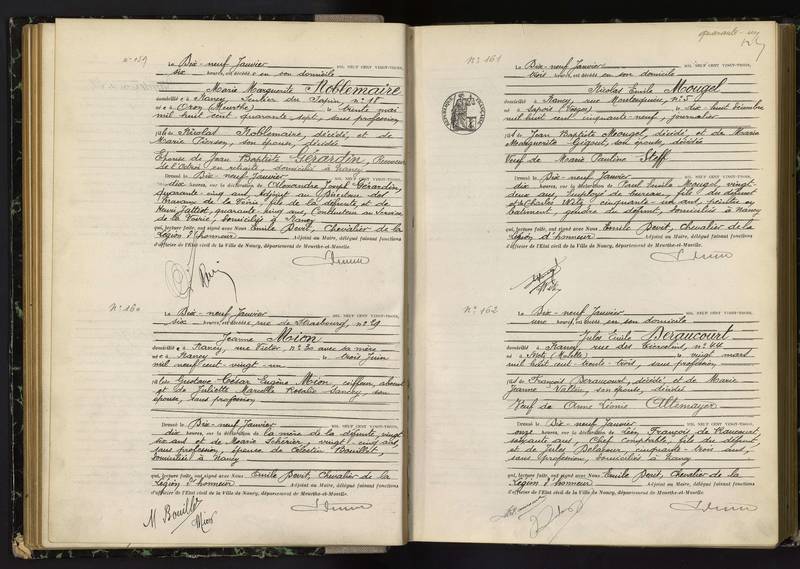 N° 159
Le Dix-neuf Janvier MIL NEUF CENT VINGT-TROIS,
dix heures, est décédée en son domicile
Marie Marguerite Noblemaire
domiciliée à Nancy, Sentier du Sapin, n° 18
née à Croy (Meurthe) le trente mai
mil huit cent quarante sept, sans profession
fille de Nicolas Noblemaire, décédé, et de
Marie son épouse, décédée
Epouse de Jean Baptiste Gérardin,
de l'Octroi en retraite, domicilié à Nancy
Dressé le Dix-neuf Janvier MIL NEUF CENT VINGT-TROIS,
dix heures, sur la déclaration de Alexandre Joseph Gérardin,
quarante-cinq ans, Adjoint au Directeur des
Travaux de la Voirie, fils de la défunte, et de
Henri Jalliot, quarante-cinq ans, Conducteur au Service
de la Voirie, domiciliés à Nancy
qui, lecture faite, ont signé avec Nous Emile Devit, Chevalier de la
Légion d'honneur Adjoint au Maire, délégué faisant fonctions
d'officier de l'Etat civil de la Ville de Nancy, département de Meurthe-et-Moselle.
N° 160
Le Dix-neuf Janvier MIL NEUF CENT VINGT-TROIS,
dix heures, est décédée rue de Strasbourg, n° 29
Jeanne Mion
domiciliée à Nancy, rue Victor n° 20 avec sa mère
née à Nancy le trois Juin
mil neuf cent vingt-un
fille de Gustave César Eugène Mion, coiffeur, absent
et de Juliette Marcelle Rosalie son
épouse, sans profession
Dressé le Dix-neuf Janvier MIL NEUF CENT VINGT-TROIS,
dix heures, sur la déclaration de la mère de la défunte, vingt
six ans et de Marie Schérier, vingt-cinq ans,
sans profession, épouse de Célestin Bouillet,
domiciliées à Nancy
qui, lecture faite, ont signé avec Nous Emile Devit, Chevalier de la
Légion d'honneur Adjoint au Maire, délégué faisant fonctions
d'officier de l'Etat civil de la Ville de Nancy, département de Meurthe-et-Moselle.
M Bouillet
Mion
quarante-un
N° 161
Le Dix-neuf Janvier MIL NEUF CENT VINGT-TROIS,
trois heures, est décédé en son domicile
Nicolas Emile Mougel
domicilié à Nancy, rue Montesquieu, n° 5
né à Sapois (Vosges) le dix huit Décembre
mil huit cent cinquante neuf, journalier
fils de Jean Baptiste Mougel, décédé, et de Marie
Marguerite Gigout, son épouse, décédée
Veuf de Marie Pauline Steff
Dressé le Dix-neuf Janvier MIL NEUF CENT VINGT-TROIS,
dix heures, sur la déclaration de Paul Emile Mougel, vingt-
deux ans, Employé de bureau, fils du défunt
et de Charles Wilz, cinquante-un ans, peintre en
bâtiment, gendre du défunt, domiciliés à Nancy
qui, lecture faite, ont signé avec Nous Emile Devit, Chevalier de la
Légion d'honneur Adjoint au Maire, délégué faisant fonctions
d'officier de l'Etat civil de la Ville de Nancy, département de Meurthe-et-Moselle.
N° 162
Le Dix-neuf Janvier MIL NEUF CENT VINGT-TROIS,
une heure, est décédé en son domicile
Jules Emile Beraucourt
domicilié à Nancy, rue des Tiercelins, n° 44
né à (Moselle) le vingt mars
mil huit cent trente-trois, sans profession
fils de François Beraucourt, décédé, et de Marie
Jeanne Vatrin, son épouse, décédée
Veuf de Anne Léonie Altemayer
Dressé le Dix-neuf Janvier MIL NEUF CENT VINGT-TROIS,
onze heures, sur la déclaration de Léon François de Raucourt
soixante ans, Chef Comptable, fils du défunt
et de Jules Delacour, cinquante-trois ans,
sans profession, domiciliés à Nancy
qui, lecture faite, ont signé avec Nous Emile Devit, Chevalier de la
Légion d'honneur Adjoint au Maire, délégué faisant fonctions
d'officier de l'Etat civil de la Ville de Nancy, département de Meurthe-et-Moselle.